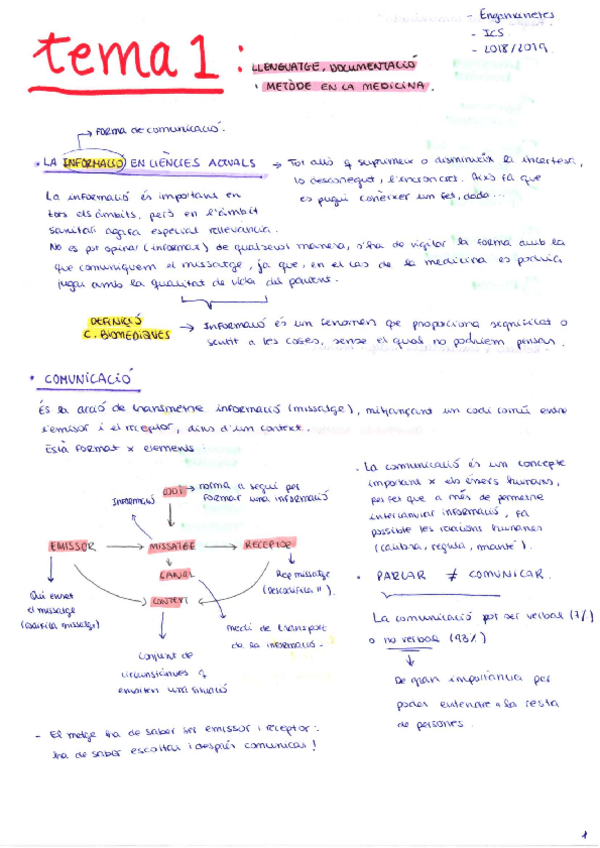 - Engonunetes
- ICS
- 2018/2019
tema 1 :
LLENGUATGE, DOCUMENTACIÓ
I METÒDE EN LA MEDICINA.
→ forma de comunicació.
• LA INFORMACIÓ EN CIÈNCIES ACTUALS → Tot allò q suprimeix o disminueix la incertesa,
lo desconegut, l'incroncret. Això fa que
es pugui conèixer un fet, dada...
La informació és important en
tots els àmbits, però en l'àmbit
sanitari agafa especial rellevància.
No es pot opinar (informar) de qualsevol manera, s'ha de vigilar la forma amb la
que comuniquem el missatge, ja que, en el cas de la medicina es podria
jugar amb la qualitat de vida del pacient.
DEFINICIÓ
C. BIOMÈDIQUES → Informació és un fenomen que proporciona significat o
sentit a les coses, sense el qual no podriem pensar.
• COMUNICACIÓ
És la acció de transmetre informació (missatge), mitjançant un codi comú entre
l'emisor i el receptor, dins d'un context.
Està format x elements:
CODI → norma a segui per
formar una informació
INFORMACIÓ
EMISSOR → MISSATGE → RECEPTOR
CANAL
CONTEXT
Qui envet
el missatge
(codifica missatge)
Rep missatge
(Descodifica ")
medi de transport
de la informació.
Conjunt de
circumstàncies q
envolten una situació
• La comunicació és un concepte
important x els éssers humans,
pel fet que a més de permetre
intercanviar informació, fa
possible les relacions humanes
(canbia, regula, manté).
• PARLAR ≠ COMUNICAR.
La comunicació pot ser verbal (7%)
o no verbal (93%)
De gran importància per
poder entendre a la resta
de persones.
- El metge ha de saber ser emissor i receptor:
ha de saber escoltar i després comunicar!
1